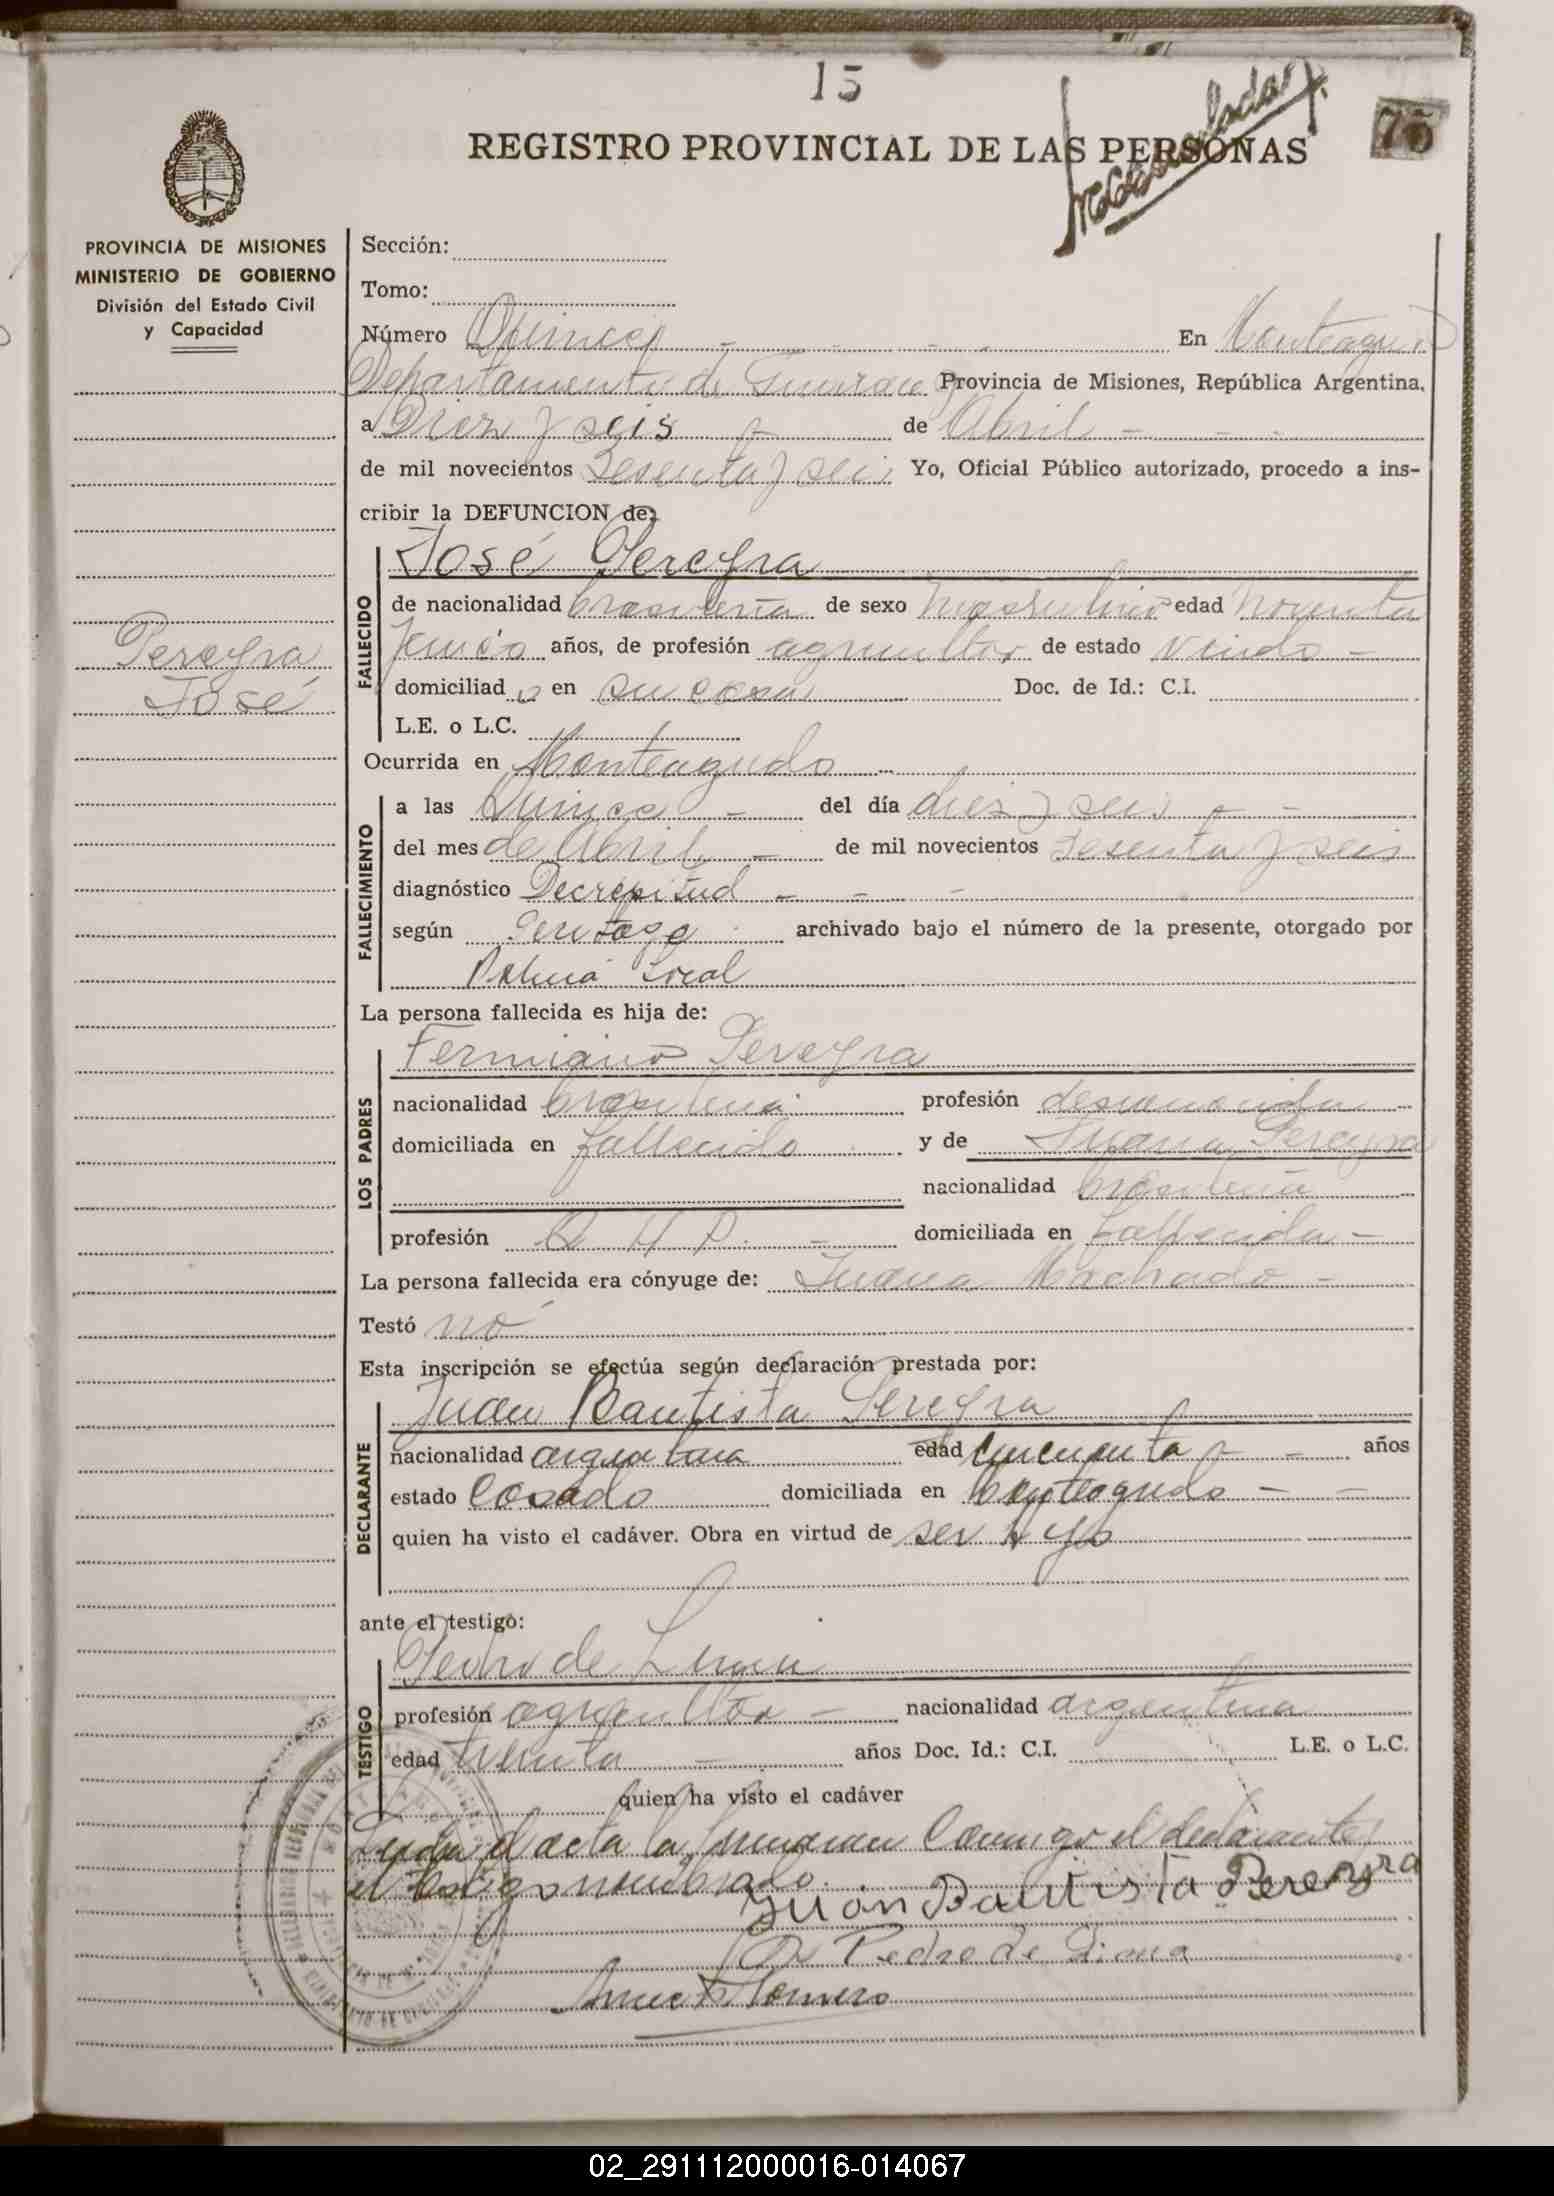 15
75
REGISTRO PROVINCIAL DE LAS PERSONAS
PROVINCIA DE MISIONES
MINISTERIO DE GOBIERNO
División del Estado Civil
y Capacidad
Pereyra
José
Sección:
Tomo:
Número Quince En Monteagudo
Departamento de Guarani Provincia de Misiones, República Argentina,
a Diez y seis de Abril
de mil novecientos Sesenta y seis Yo, Oficial Público autorizado, procedo a ins-
cribir la DEFUNCION de:
FALLECIDO
José Pereyra
de nacionalidad brasileña de sexo Masculino edad Noventa
y cinco años, de profesión agricultor de estado viudo
domiciliad o en su casa Doc. de Id.: C.I.
L.E. o L.C.
Ocurrida en Monteagudo
FALLECIMIENTO
a las Quince del día diez y seis
del mes de Abril de mil novecientos Sesenta y seis
diagnóstico Decrepitud
según archivado bajo el número de la presente, otorgado por
Local
La persona fallecida es hija de:
LOS PADRES
Fermiano Pereyra
nacionalidad brasileña profesión desconocida
domiciliada en fallecido y de Juana Pereyra
nacionalidad brasileña
profesión Q H D. domiciliada en fallecida
La persona fallecida era cónyuge de: Juana Machado
Testó nó
Esta inscripción se efectúa según declaración prestada por:
DECLARANTE
Juan Bautista Pereyra
nacionalidad argentina edad Cincuenta años
estado Casado domiciliada en Monteagudo
quien ha visto el cadáver. Obra en virtud de ser Hijo
ante el testigo:
TESTIGO
Pedro de Lima
profesión agricultor nacionalidad argentina
edad treinta años Doc. Id.: C.I. L.E. o L.C.
quien ha visto el cadáver
Leida el acta la firman Conmigo el declarante y
el testigo nombrado.
Juan Bautista Pereyra
Pedro de Lima
02_291112000016-014067